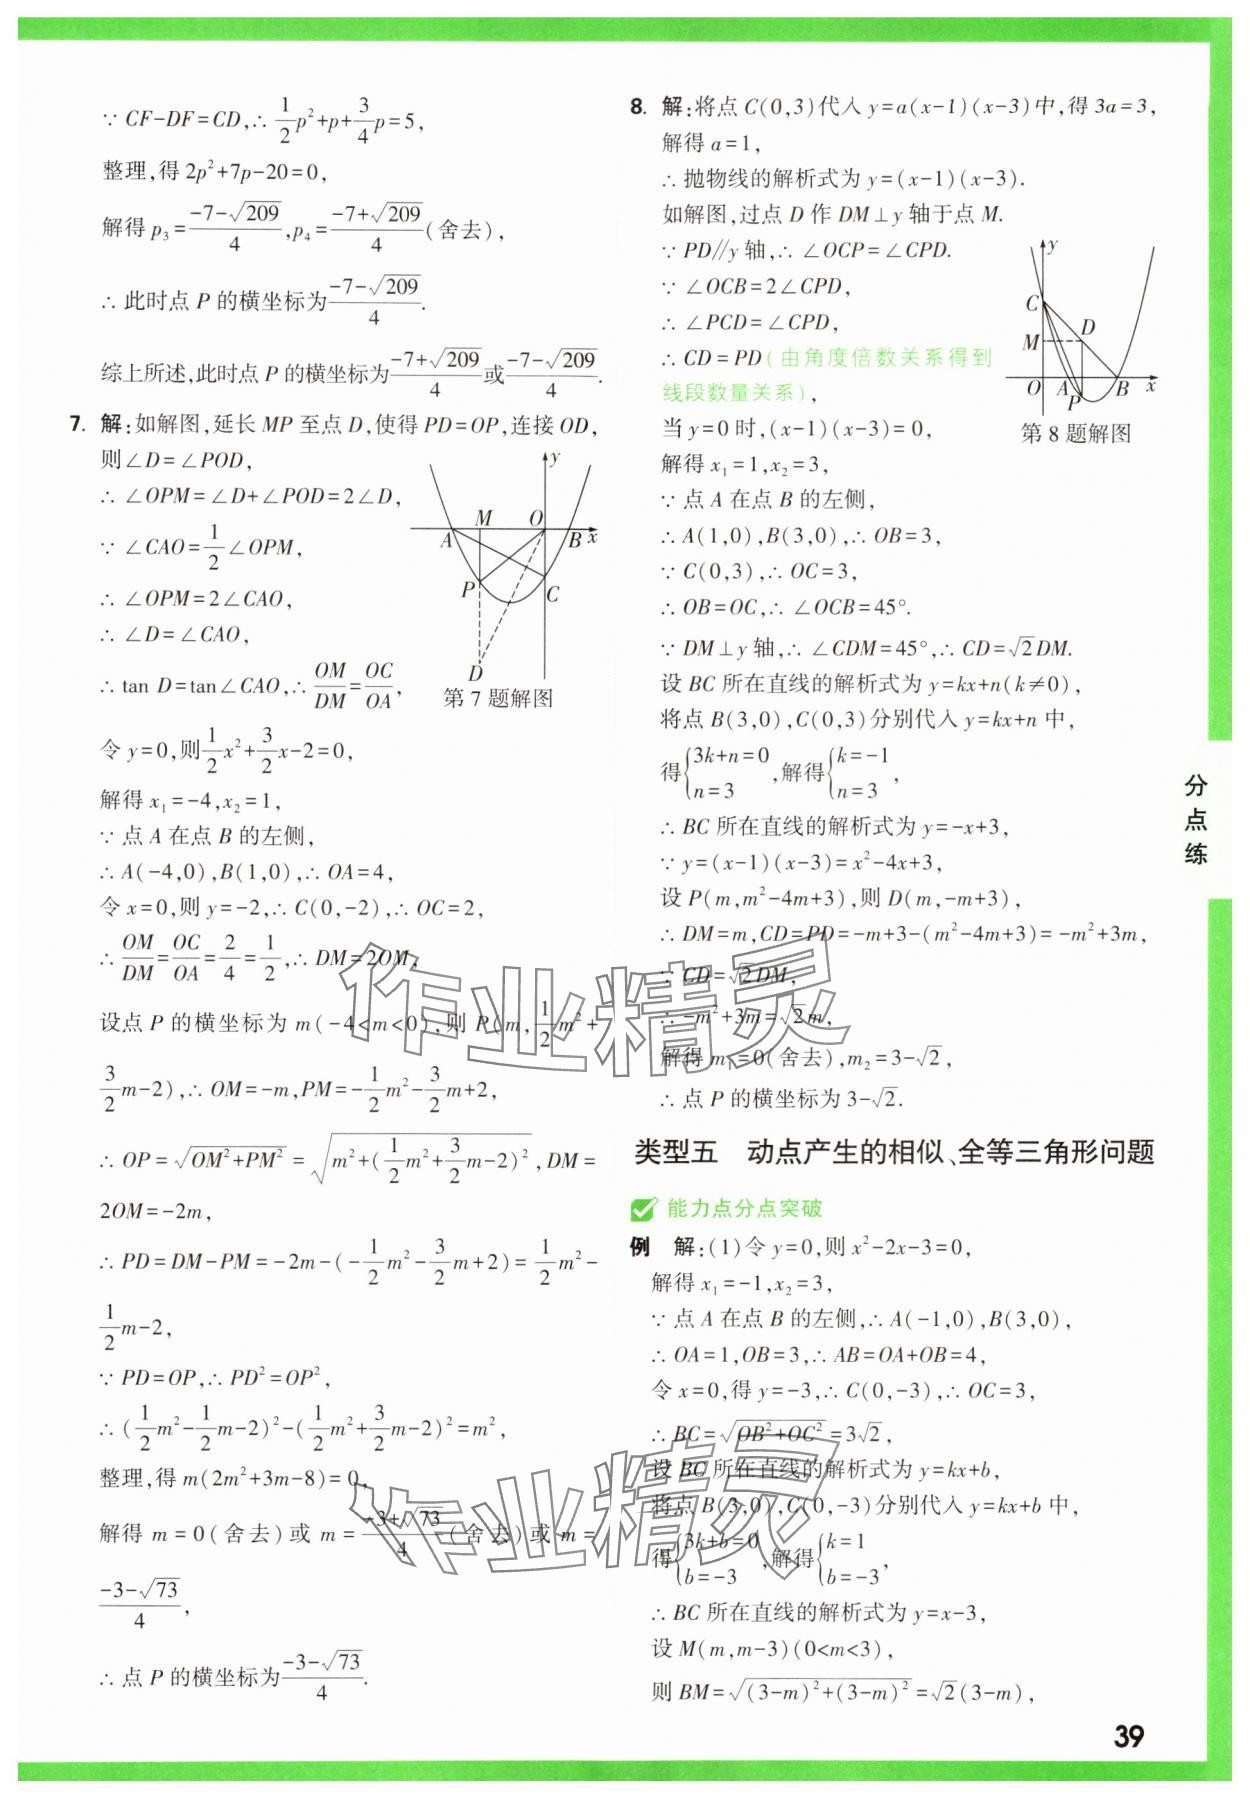 ∵ CF-DF=CD,∴ \frac{1}{2}p²+p+\frac{3}{4}p=5,
整理,得 2p²+7p-20=0,
解得 p₃=\frac{-7-√209}{4},p₄=\frac{-7+√209}{4}(舍去),
∴ 此时点 P 的横坐标为\frac{-7-√209}{4}.
综上所述,此时点 P 的横坐标为\frac{-7+√209}{4}或\frac{-7-√209}{4}.
7. 解:如解图,延长 MP 至点 D,使得 PD=OP,连接 OD,
则∠D=∠POD,
∴ ∠OPM=∠D+∠POD=2∠D,
∵ ∠CAO=\frac{1}{2}∠OPM,
∴ ∠OPM=2∠CAO,
∴ ∠D=∠CAO,
∴ tan D=tan∠CAO,∴ \frac{OM}{DM}=\frac{OC}{OA},
y
M
O
A
B
x
P
C
D
第 7 题解图
令 y=0,则\frac{1}{2}x²+\frac{3}{2}x-2=0,
解得 x₁=-4,x₂=1,
∵ 点 A 在点 B 的左侧,
∴ A(-4,0),B(1,0),∴ OA=4,
令 x=0,则 y=-2,∴ C(0,-2),∴ OC=2,
∴ \frac{OM}{DM}=\frac{OC}{OA}=\frac{2}{4}=\frac{1}{2},∴ DM=2OM,
设点 P 的横坐标为 m(-4<m<0),则 P(m,\frac{1}{2}m²+
\frac{3}{2}m-2),∴ OM=-m,PM=-\frac{1}{2}m²-\frac{3}{2}m+2,
∴ OP=√(OM²+PM²)=√(m²+(\frac{1}{2}m²+\frac{3}{2}m-2)²),DM=
2OM=-2m,
∴ PD=DM-PM=-2m-(-\frac{1}{2}m²-\frac{3}{2}m+2)=\frac{1}{2}m²-
\frac{1}{2}m-2,
∵ PD=OP,∴ PD²=OP²,
∴ (\frac{1}{2}m²-\frac{1}{2}m-2)²-(\frac{1}{2}m²+\frac{3}{2}m-2)²=m²,
整理,得 m(2m²+3m-8)=0,
解得 m=0(舍去)或 m=\frac{-3+√73}{4}(舍去)或 m=
\frac{-3-√73}{4},
∴ 点 P 的横坐标为\frac{-3-√73}{4}.
8. 解:将点 C(0,3)代入 y=a(x-1)(x-3)中,得 3a=3,
解得 a=1,
∴ 抛物线的解析式为 y=(x-1)(x-3).
如解图,过点 D 作 DM⊥y 轴于点 M.
∵ PD//y 轴,∴ ∠OCP=∠CPD.
∵ ∠OCB=2∠CPD,
∴ ∠PCD=∠CPD,
∴ CD=PD(由角度倍数关系得到
线段数量关系),
y
C
D
M
O
A
P
B
x
第 8 题解图
当 y=0 时,(x-1)(x-3)=0,
解得 x₁=1,x₂=3,
∵ 点 A 在点 B 的左侧,
∴ A(1,0),B(3,0),∴ OB=3,
∵ C(0,3),∴ OC=3,
∴ OB=OC,∴ ∠OCB=45°.
∵ DM⊥y 轴,∴ ∠CDM=45°,∴ CD=√2DM.
设 BC 所在直线的解析式为 y=kx+n(k≠0),
将点 B(3,0),C(0,3)分别代入 y=kx+n 中,
得{3k+n=0 n=3,解得{k=-1 n=3,
∴ BC 所在直线的解析式为 y=-x+3,
∵ y=(x-1)(x-3)=x²-4x+3,
设 P(m,m²-4m+3),则 D(m,-m+3),
∴ DM=m,CD=PD=-m+3-(m²-4m+3)=-m²+3m,
∵ CD=√2DM,
∴ -m²+3m=√2m,
解得 m₁=0(舍去),m₂=3-√2,
∴ 点 P 的横坐标为 3-√2.
类型五 动点产生的相似、全等三角形问题
能力点分点突破
例 解:(1)令 y=0,则 x²-2x-3=0,
解得 x₁=-1,x₂=3,
∵ 点 A 在点 B 的左侧,∴ A(-1,0),B(3,0),
∴ OA=1,OB=3,∴ AB=OA+OB=4,
令 x=0,得 y=-3,∴ C(0,-3),∴ OC=3,
∴ BC=√(OB²+OC²)=3√2,
设 BC 所在直线的解析式为 y=kx+b,
将点 B(3,0),C(0,-3)分别代入 y=kx+b 中,
得{3k+b=0 b=-3,解得{k=1 b=-3,
∴ BC 所在直线的解析式为 y=x-3,
设 M(m,m-3)(0<m<3),
则 BM=√((3-m)²+(3-m)²)=√2(3-m),
分点练
39
作业精灵
作业精灵